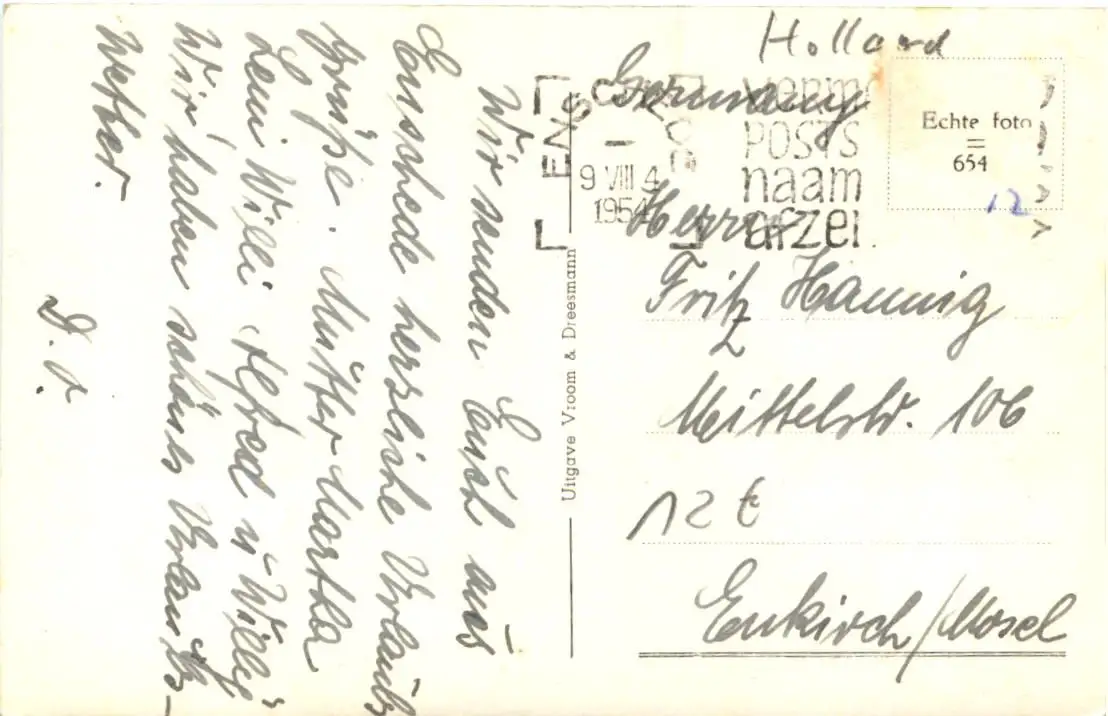 Wir senden Euch aus
Enschede herzliche Urlaubs
grüße. Mutter Martha
Leni Willi Alfred u Willy
Wir haben schönes Urlaubs-
wetter.
D. O.
Uitgave Vroom & Dreesmann
Holland
Germany
ENS
9 VIII 4
1954
POSTS
naam
afzei
Echte foto
=
654
12
Herrn
Fritz Hannig
Mittelstr. 106
12 €
Enkirch/Mosel